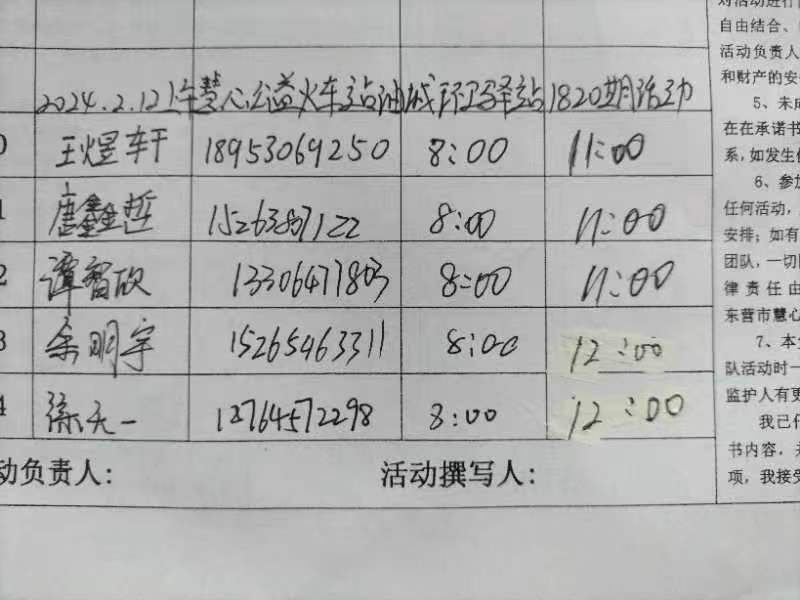 2024.2.12上午慧心公益火车站油城环卫驿站1820期活动
0 王煜轩 18953069250 8:00 11:00
1 唐鑫哲 15263897122 8:00 11:00
2 谭智欣 8:00 11:00
3 余明宇 15265463311 8:00 12:00
4 徐天一 12764572298 8:00 12:00
动负责人: 活动撰写人:
对活动进行
自由结合、
活动负责人
和财产的安
5、未成
在在承诺书
系,如发生
6、参加
任何活动,
安排;如有
团队,一切
律责任由
东营市慧心
7、本
队活动时一
监护人有更
我已
书内容,并
项,我接受